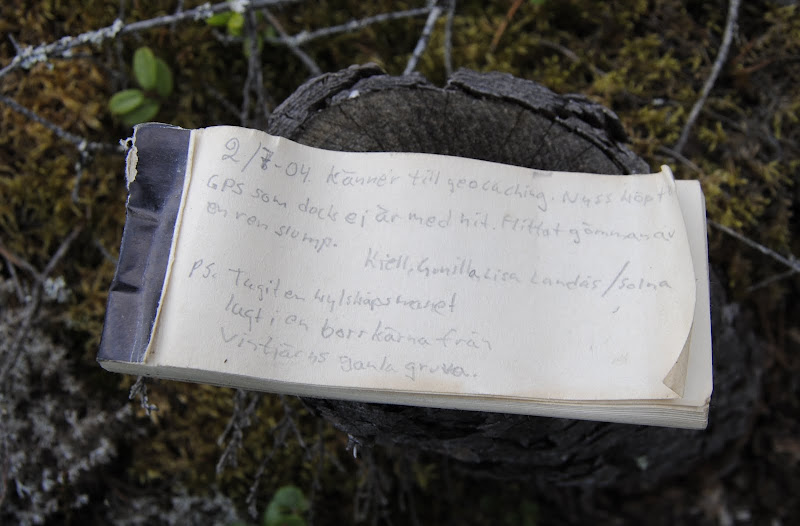 2/7-04. Känner till geocaching. Nyss köpt
GPS som dock ej är med hit. Hittat gömman av
en ren slump.
Kjell, Gunilla, Lisa Landås / Solna
PS. Tagit en kylskåpsmagnet
lagt i en borrkärna från
Vintjärns gamla gruva.